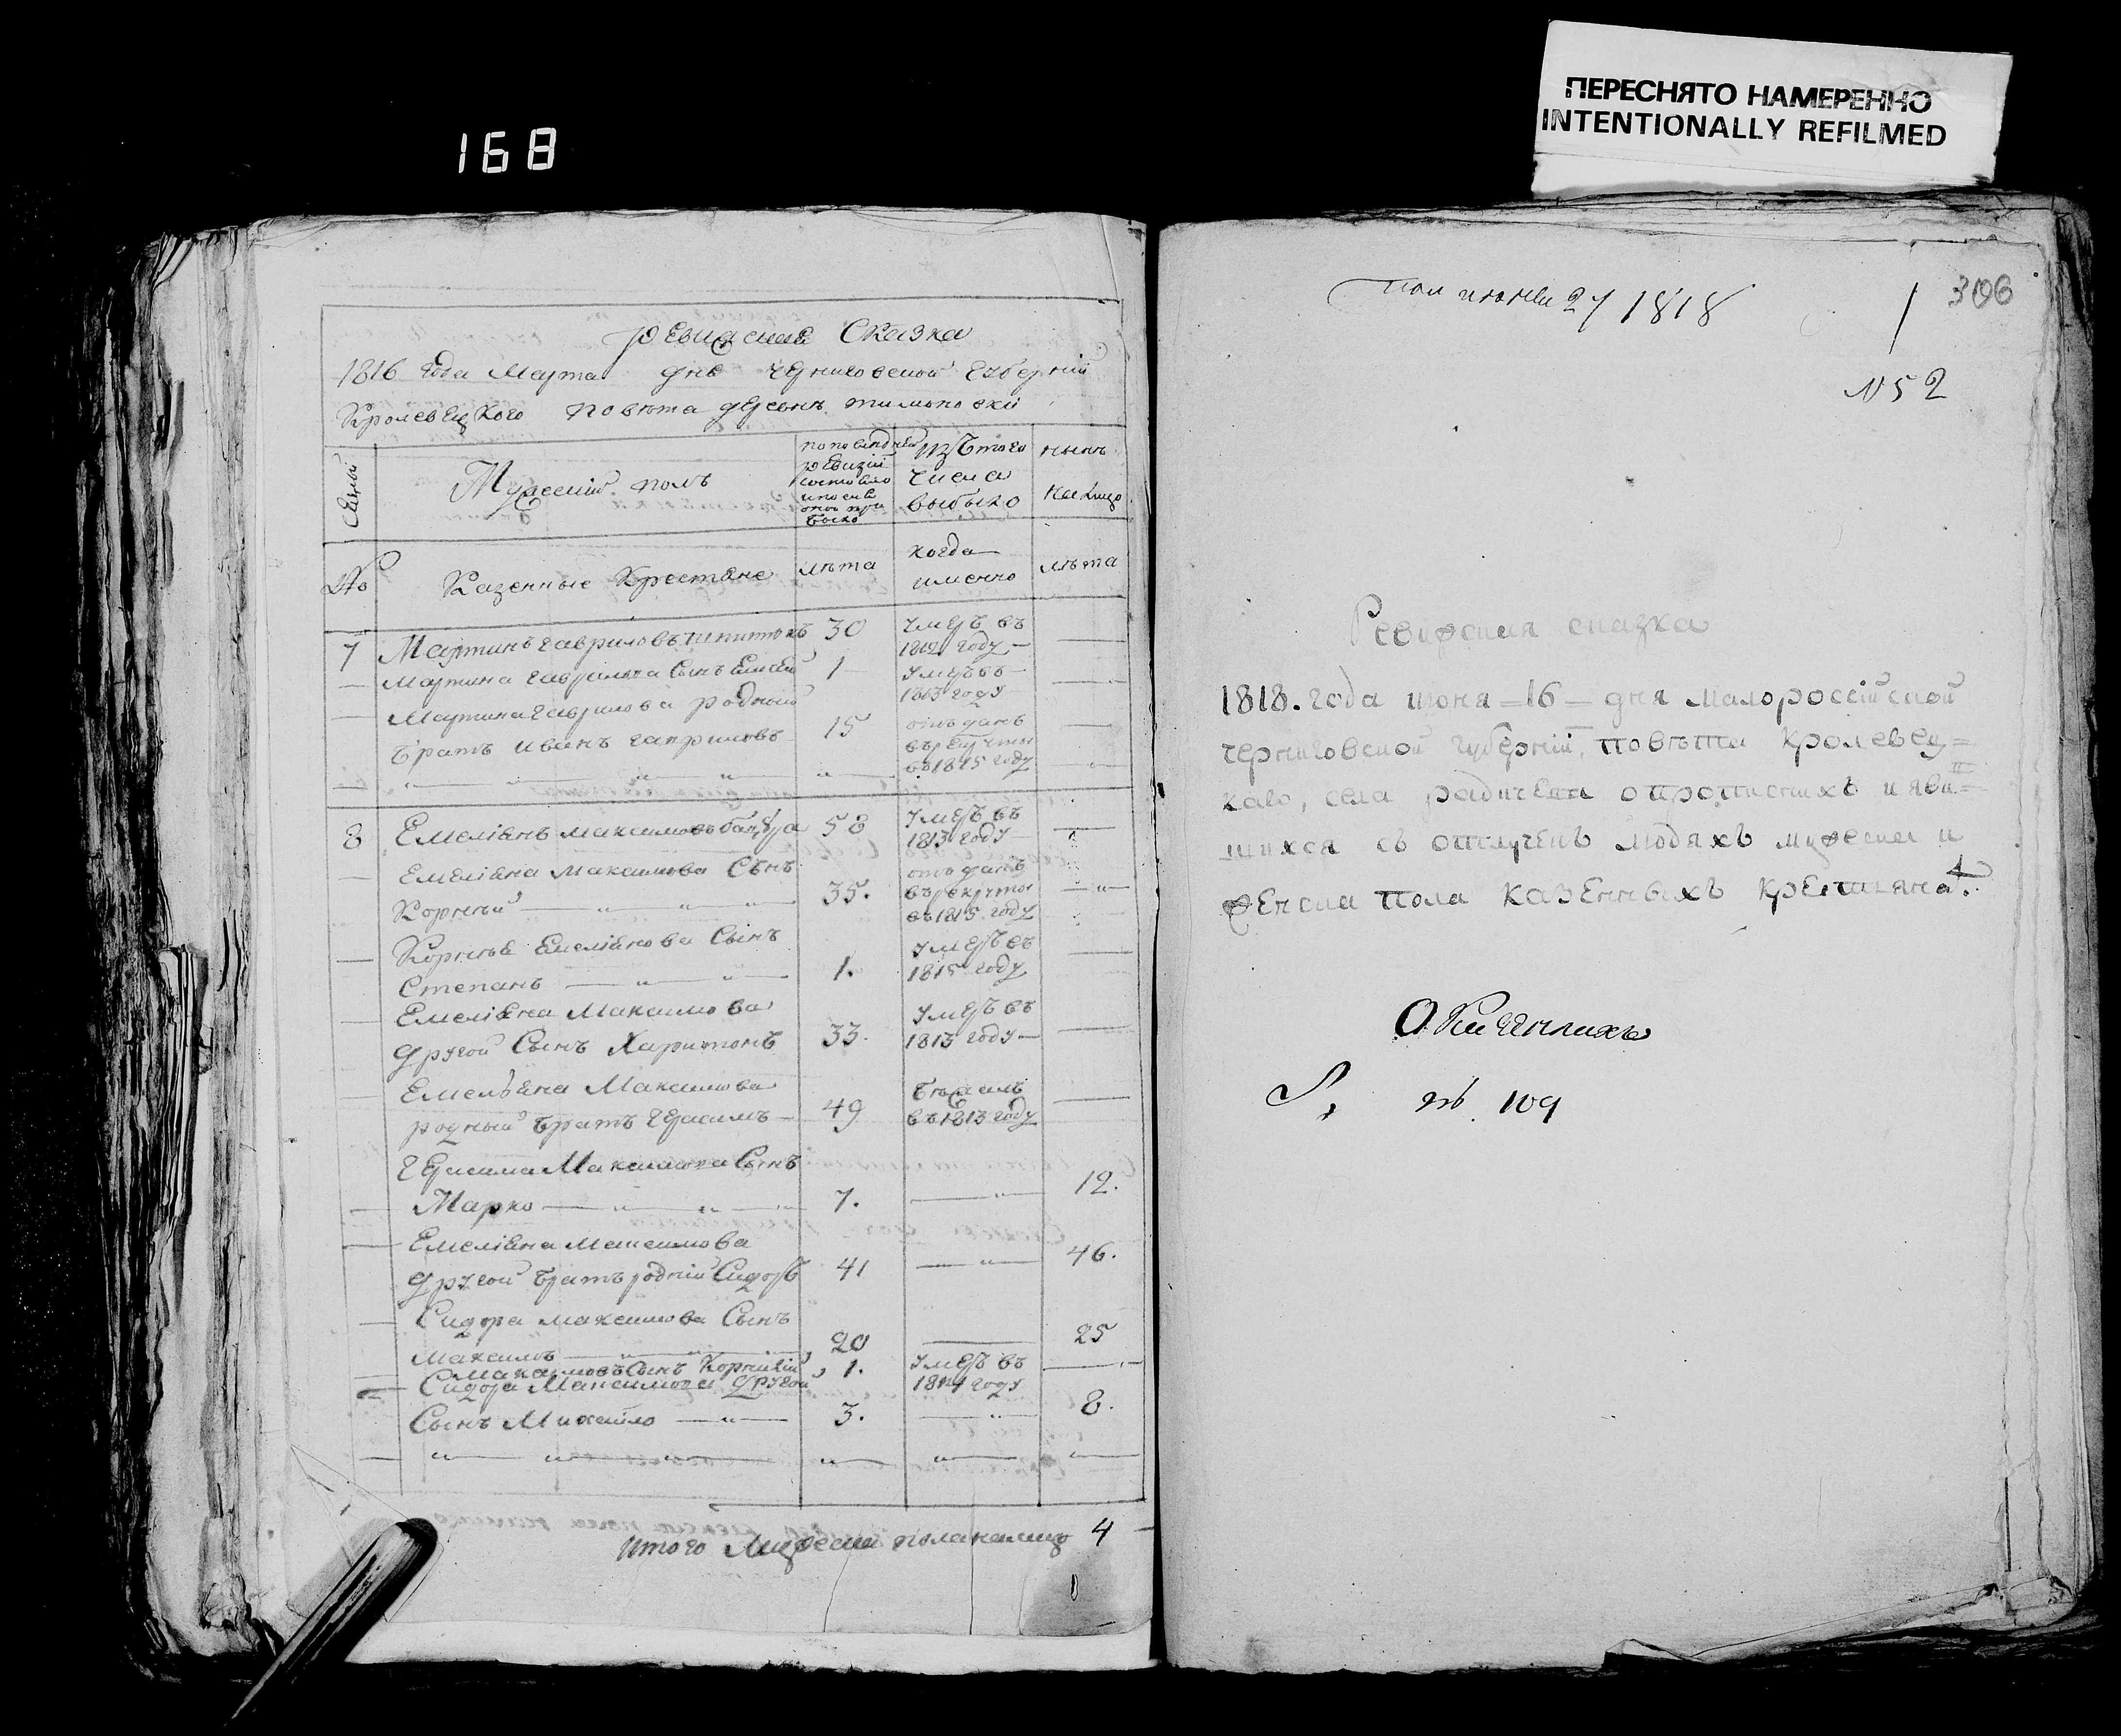 168
ПЕРЕСНЯТО НАМЕРЕННО
INTENTIONALLY REFILMED
Ревижская Сказка
1816 года Марта дня Черниговской губерніи
Кролевецкого повѣта деревнѣ
Семьи
Мужескій полъ
по последней ревизіи состояло и после оной прибыло
Изъ того числа выбыло
нынѣ на лицо
№
Казенные Крестяне
лѣта
когда именно
лѣта
7 Мартинъ Гавриловъ 30 умеръ въ 1812 году —
— Мартина Гаврилова Сынъ Елисей 1 умеръ въ 1813 году —
— Мартина Гаврилова родный
братъ Иванъ Гавриловъ 15 отъданъ въ рекруты въ 1815 году —
8 Емеліянъ Максимовъ 58 умеръ въ 1813 году —
— Емеліяна Максимова Сынъ
Корнѣй 35. отъданъ въ рекруты въ 1815 году —
— Корнѣя Емеліянова Сынъ
Степанъ 1. умеръ въ 1815 году —
— Емеліяна Максимова
другой Сынъ Харитонъ 33. умеръ въ 1813 году —
— Емельяна Максимова
родный братъ Герасимъ — 49 бѣжалъ въ 1813 году —
Герасима Максимова Сынъ
— Марко 7. — 12.
— Емеліяна Максимова
другой братъ родній Сидоръ 41 — 46.
— Сидора Максимова Сынъ
Максимъ 20 — 25
— Максимовъ Сынъ Корнилій 1. умеръ въ 1814 году —
— Сидора Максимова другой
Сынъ Михайло — 3. — 8.
Итого Мужеска пола на лицо 4
июня 27 1818
1
306
№ 52
Ревижская сказка
1818. года июня — 16 — дня Малороссійской
Черниговской губерніи, повѣта Кролевец=
каго, села Радичева о прописныхъ и яви=
шихся съ отлученъ людяхъ мужеска и
женска пола казенныхъ крестяна.
109